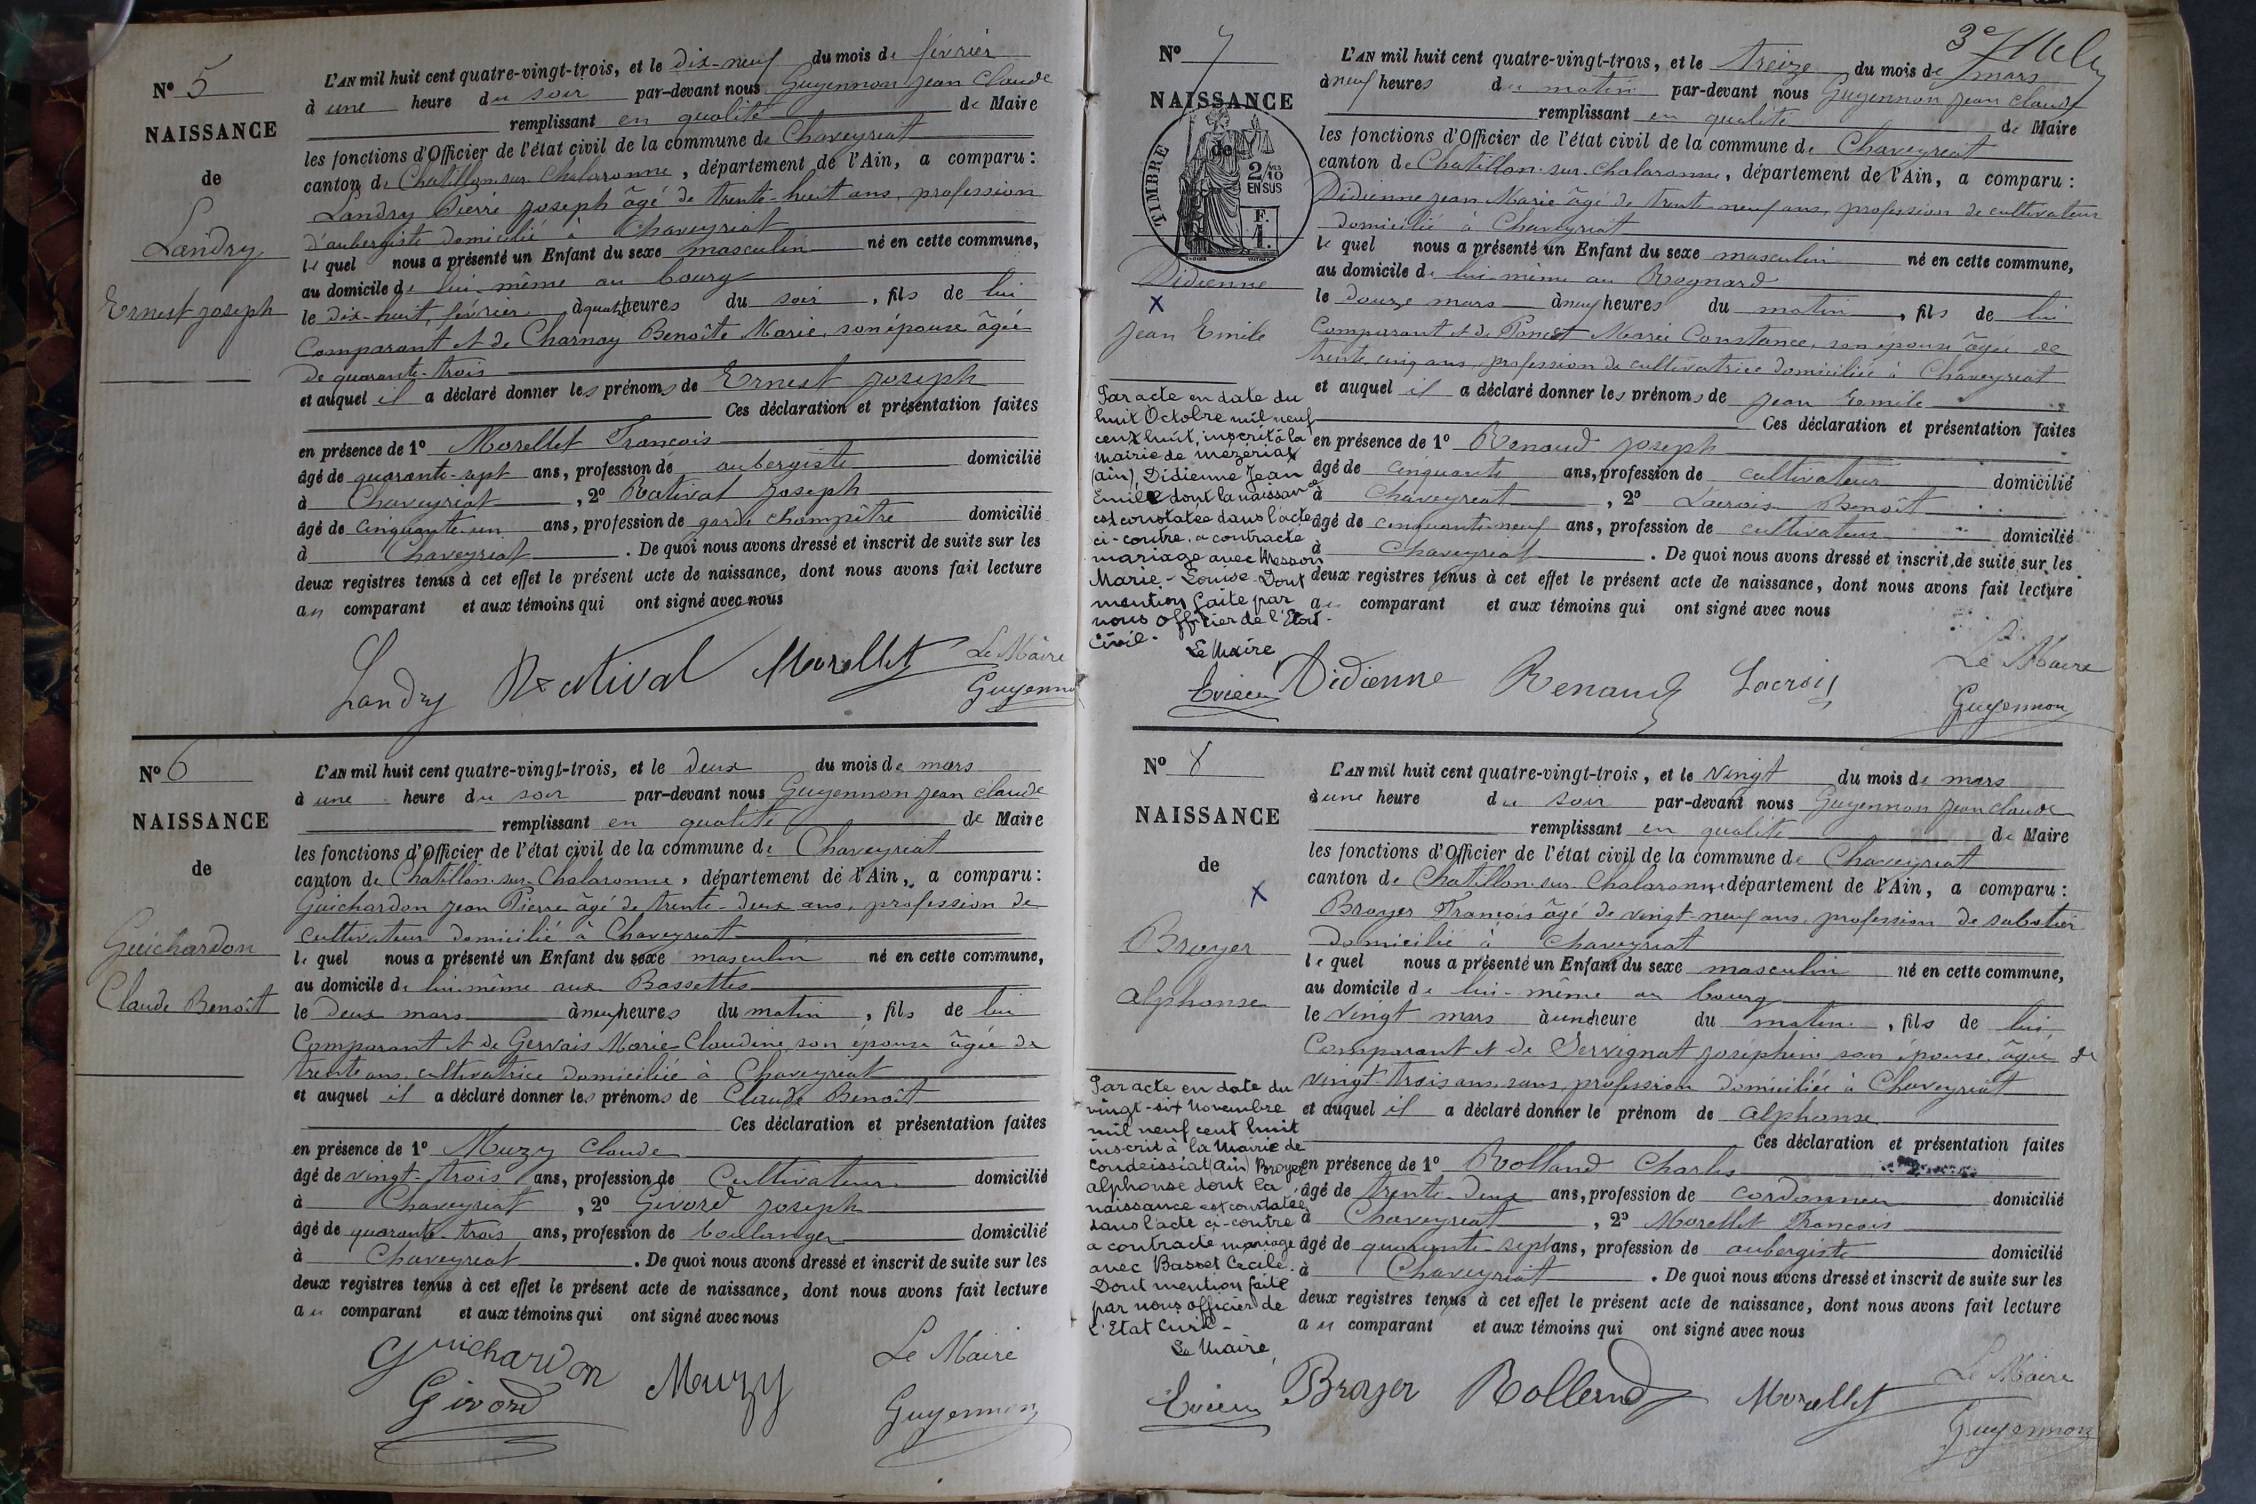 No 5
NAISSANCE
de
Landry
Ernest Joseph
L'AN mil huit cent quatre-vingt-trois, et le dix-neuf du mois de février
à une heure du soir par-devant nous Guyennon Jean Claude
remplissant en qualité de Maire
les fonctions d'Officier de l'état civil de la commune de Chaveyriat
canton de Chatillon-sur-Chalaronne, département de l'Ain, a comparu :
Landry Pierre Joseph âgé de trente-huit ans, profession
d'aubergiste domicilié à Chaveyriat
lequel nous a présenté un Enfant du sexe masculin né en cette commune,
au domicile de lui-même au bourg
le dix-huit février à quatre heures du soir, fils de lui
Comparant et de Charnay Benoîte Marie, son épouse âgée
de quarante-trois
et auquel il a déclaré donner les prénoms de Ernest Joseph
Ces déclaration et présentation faites
en présence de 1º Morellet François
âgé de quarante-sept ans, profession de aubergiste domicilié
à Chaveyriat, 2º Rativat Joseph
âgé de cinquante-un ans, profession de garde champêtre domicilié
à Chaveyriat. De quoi nous avons dressé et inscrit de suite sur les
deux registres tenus à cet effet le présent acte de naissance, dont nous avons fait lecture
au comparant et aux témoins qui ont signé avec nous
Landry Rativat Morellet Le Maire
Guyennon
No 6
NAISSANCE
de
Guichardon
Claude Benoît
L'AN mil huit cent quatre-vingt-trois, et le deux du mois de mars
à une heure du soir par-devant nous Guyennon Jean Claude
remplissant en qualité de Maire
les fonctions d'Officier de l'état civil de la commune de Chaveyriat
canton de Chatillon-sur-Chalaronne, département de l'Ain, a comparu :
Guichardon Jean Pierre âgé de trente-deux ans, profession de
cultivateur domicilié à Chaveyriat
lequel nous a présenté un Enfant du sexe masculin né en cette commune,
au domicile de lui-même aux Bassettes
le deux mars à neuf heures du matin, fils de lui
Comparant et de Gervais Marie-Claudine son épouse âgée de
trente ans, cultivatrice domiciliée à Chaveyriat
et auquel il a déclaré donner les prénoms de Claude Benoît
Ces déclaration et présentation faites
en présence de 1º Muzy Claude
âgé de vingt-trois ans, profession de Cultivateur domicilié
à Chaveyriat, 2º Givord Joseph
âgé de quarante-trois ans, profession de boulanger domicilié
à Chaveyriat. De quoi nous avons dressé et inscrit de suite sur les
deux registres tenus à cet effet le présent acte de naissance, dont nous avons fait lecture
au comparant et aux témoins qui ont signé avec nous
Guichardon Muzy Le Maire
Givord Guyennon
3e
No 7
NAISSANCE
de
TIMBRE
2/10
EN SUS
F.
1.
Didienne
X
Jean Emile
L'AN mil huit cent quatre-vingt-trois, et le treize du mois de mars
à neuf heures du matin par-devant nous Guyennon Jean Claude
remplissant en qualité de Maire
les fonctions d'Officier de l'état civil de la commune de Chaveyriat
canton de Chatillon-sur-Chalaronne, département de l'Ain, a comparu :
Didienne Jean Marie âgé de trente neuf ans, profession de cultivateur
domicilié à Chaveyriat
lequel nous a présenté un Enfant du sexe masculin né en cette commune,
au domicile de lui-même au Rognard
le douze mars à neuf heures du matin, fils de lui
Comparant et de Ponest Marie Constance, son épouse âgée de
trente cinq ans, profession de cultivatrice domiciliée à Chaveyriat
et auquel il a déclaré donner les prénoms de Jean Emile
Ces déclaration et présentation faites
en présence de 1º Renaud Joseph
âgé de cinquante ans, profession de cultivateur domicilié
à Chaveyriat, 2º Lacroix Benoît
âgé de cinquante-neuf ans, profession de cultivateur domicilié
à Chaveyriat. De quoi nous avons dressé et inscrit de suite sur les
deux registres tenus à cet effet le présent acte de naissance, dont nous avons fait lecture
au comparant et aux témoins qui ont signé avec nous
Par acte en date du
huit Octobre mil neuf
cent huit, inscrit à la
mairie de Mézériat
(ain), Didienne Jean
Emile dont la naissance
est constatée dans l'acte
ci-contre, a contracté
mariage avec Messon
Marie-Louise. Dont
mention faite par
nous officier de l'Etat-
Civil.
Le Maire
Didienne Renaud Lacroix Le Maire
Guyennon
No 8
NAISSANCE
de
X
Broyer
Alphonse
L'AN mil huit cent quatre-vingt-trois, et le vingt du mois de mars
à une heure du soir par-devant nous Guyennon Jean Claude
remplissant en qualité de Maire
les fonctions d'Officier de l'état civil de la commune de Chaveyriat
canton de Chatillon-sur-Chalaronne, département de l'Ain, a comparu :
Broyer François âgé de vingt-neuf ans, profession de sabotier
domicilié à Chaveyriat
lequel nous a présenté un Enfant du sexe masculin né en cette commune,
au domicile de lui-même au bourg
le vingt mars à une heure du matin, fils de lui
Comparant et de Servignat Joséphine son épouse âgée de
vingt-trois ans, sans profession domiciliée à Chaveyriat
et auquel il a déclaré donner le prénom de Alphonse
Ces déclaration et présentation faites
en présence de 1º Rolland Charles
âgé de trente-deux ans, profession de cordonnier domicilié
à Chaveyriat, 2º Morellet François
âgé de quarante-sept ans, profession de aubergiste domicilié
à Chaveyriat. De quoi nous avons dressé et inscrit de suite sur les
deux registres tenus à cet effet le présent acte de naissance, dont nous avons fait lecture
au comparant et aux témoins qui ont signé avec nous
Par acte en date du
vingt-six Novembre
mil neuf cent huit
inscrit à la Mairie de
Condeissiat (ain) Broyer
alphonse dont la
naissance est constatée
dans l'acte ci-contre
a contracté mariage
avec Basset Cécile.
Dont mention faite
par nous officier de
l'Etat Civil-
Le Maire,
Broyer Rolland Morellet Le Maire
Guyennon